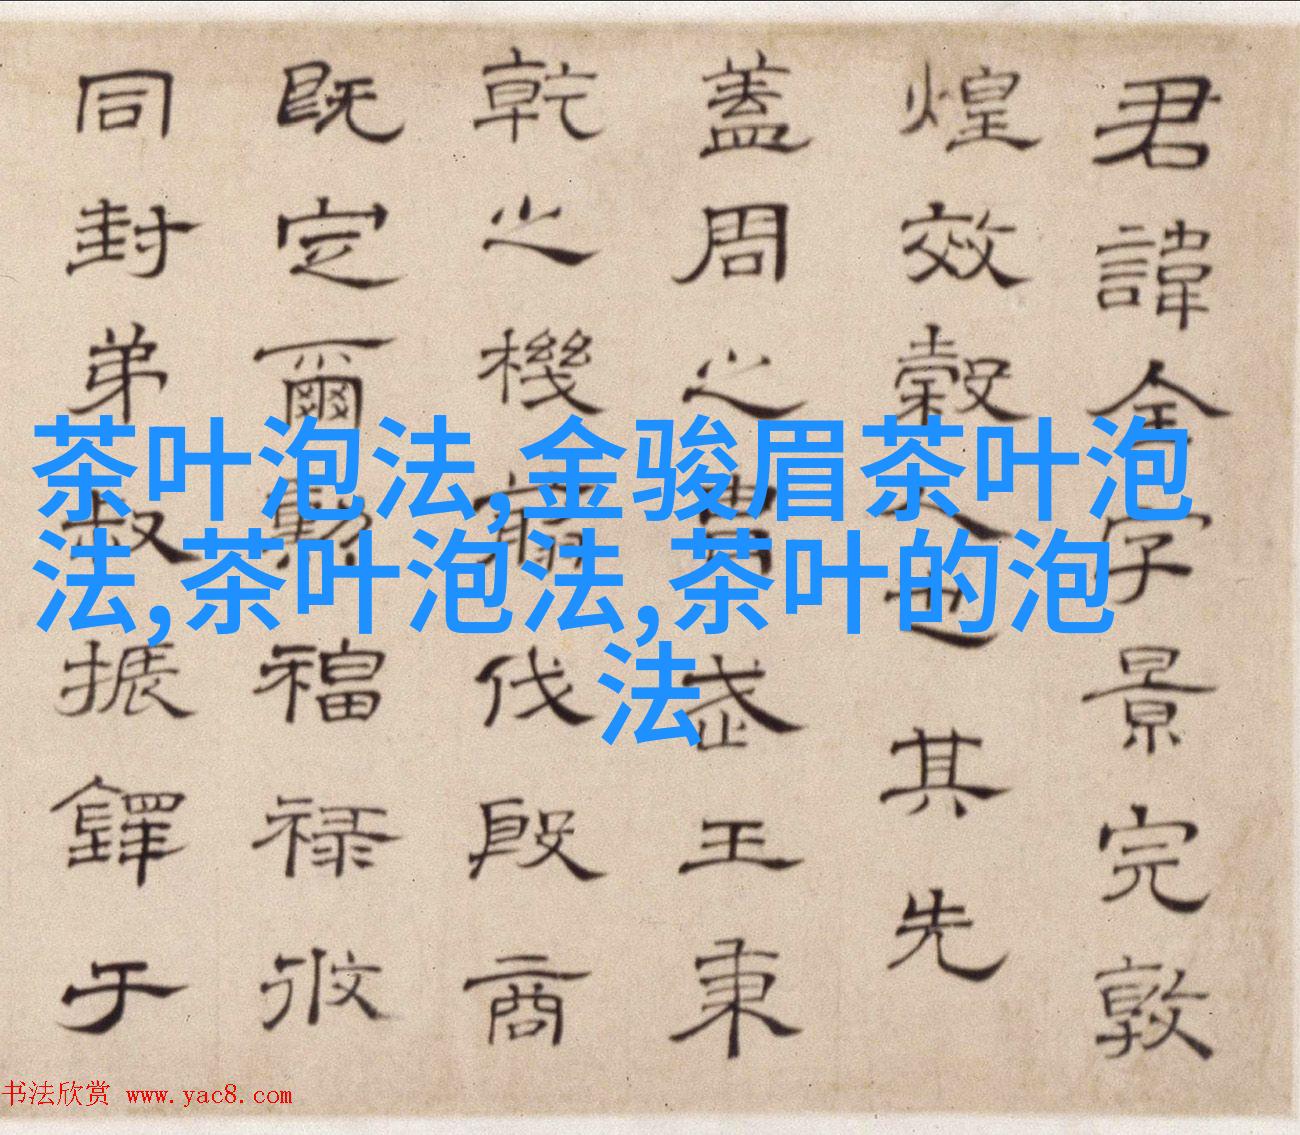 君諱全字景完敦
煌效穀人也其先
蓋周之胄武王秉
乾之機翦伐殷商
既定爾勳福祿攸
同封弟叔振鐸于
茶叶泡法,金骏眉茶叶泡
法,茶叶泡法,茶叶的泡
法
书法欣赏 www.yac8.com